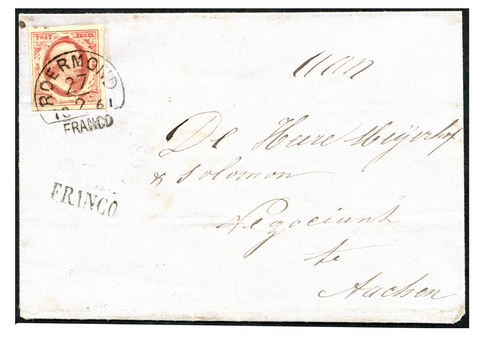 POST ZEGEL
ROERMOND
27
2
61
FRANCO
FRANCO
aan
De Heere Meijerhof
& Solomon
Negociant
te
Aachen